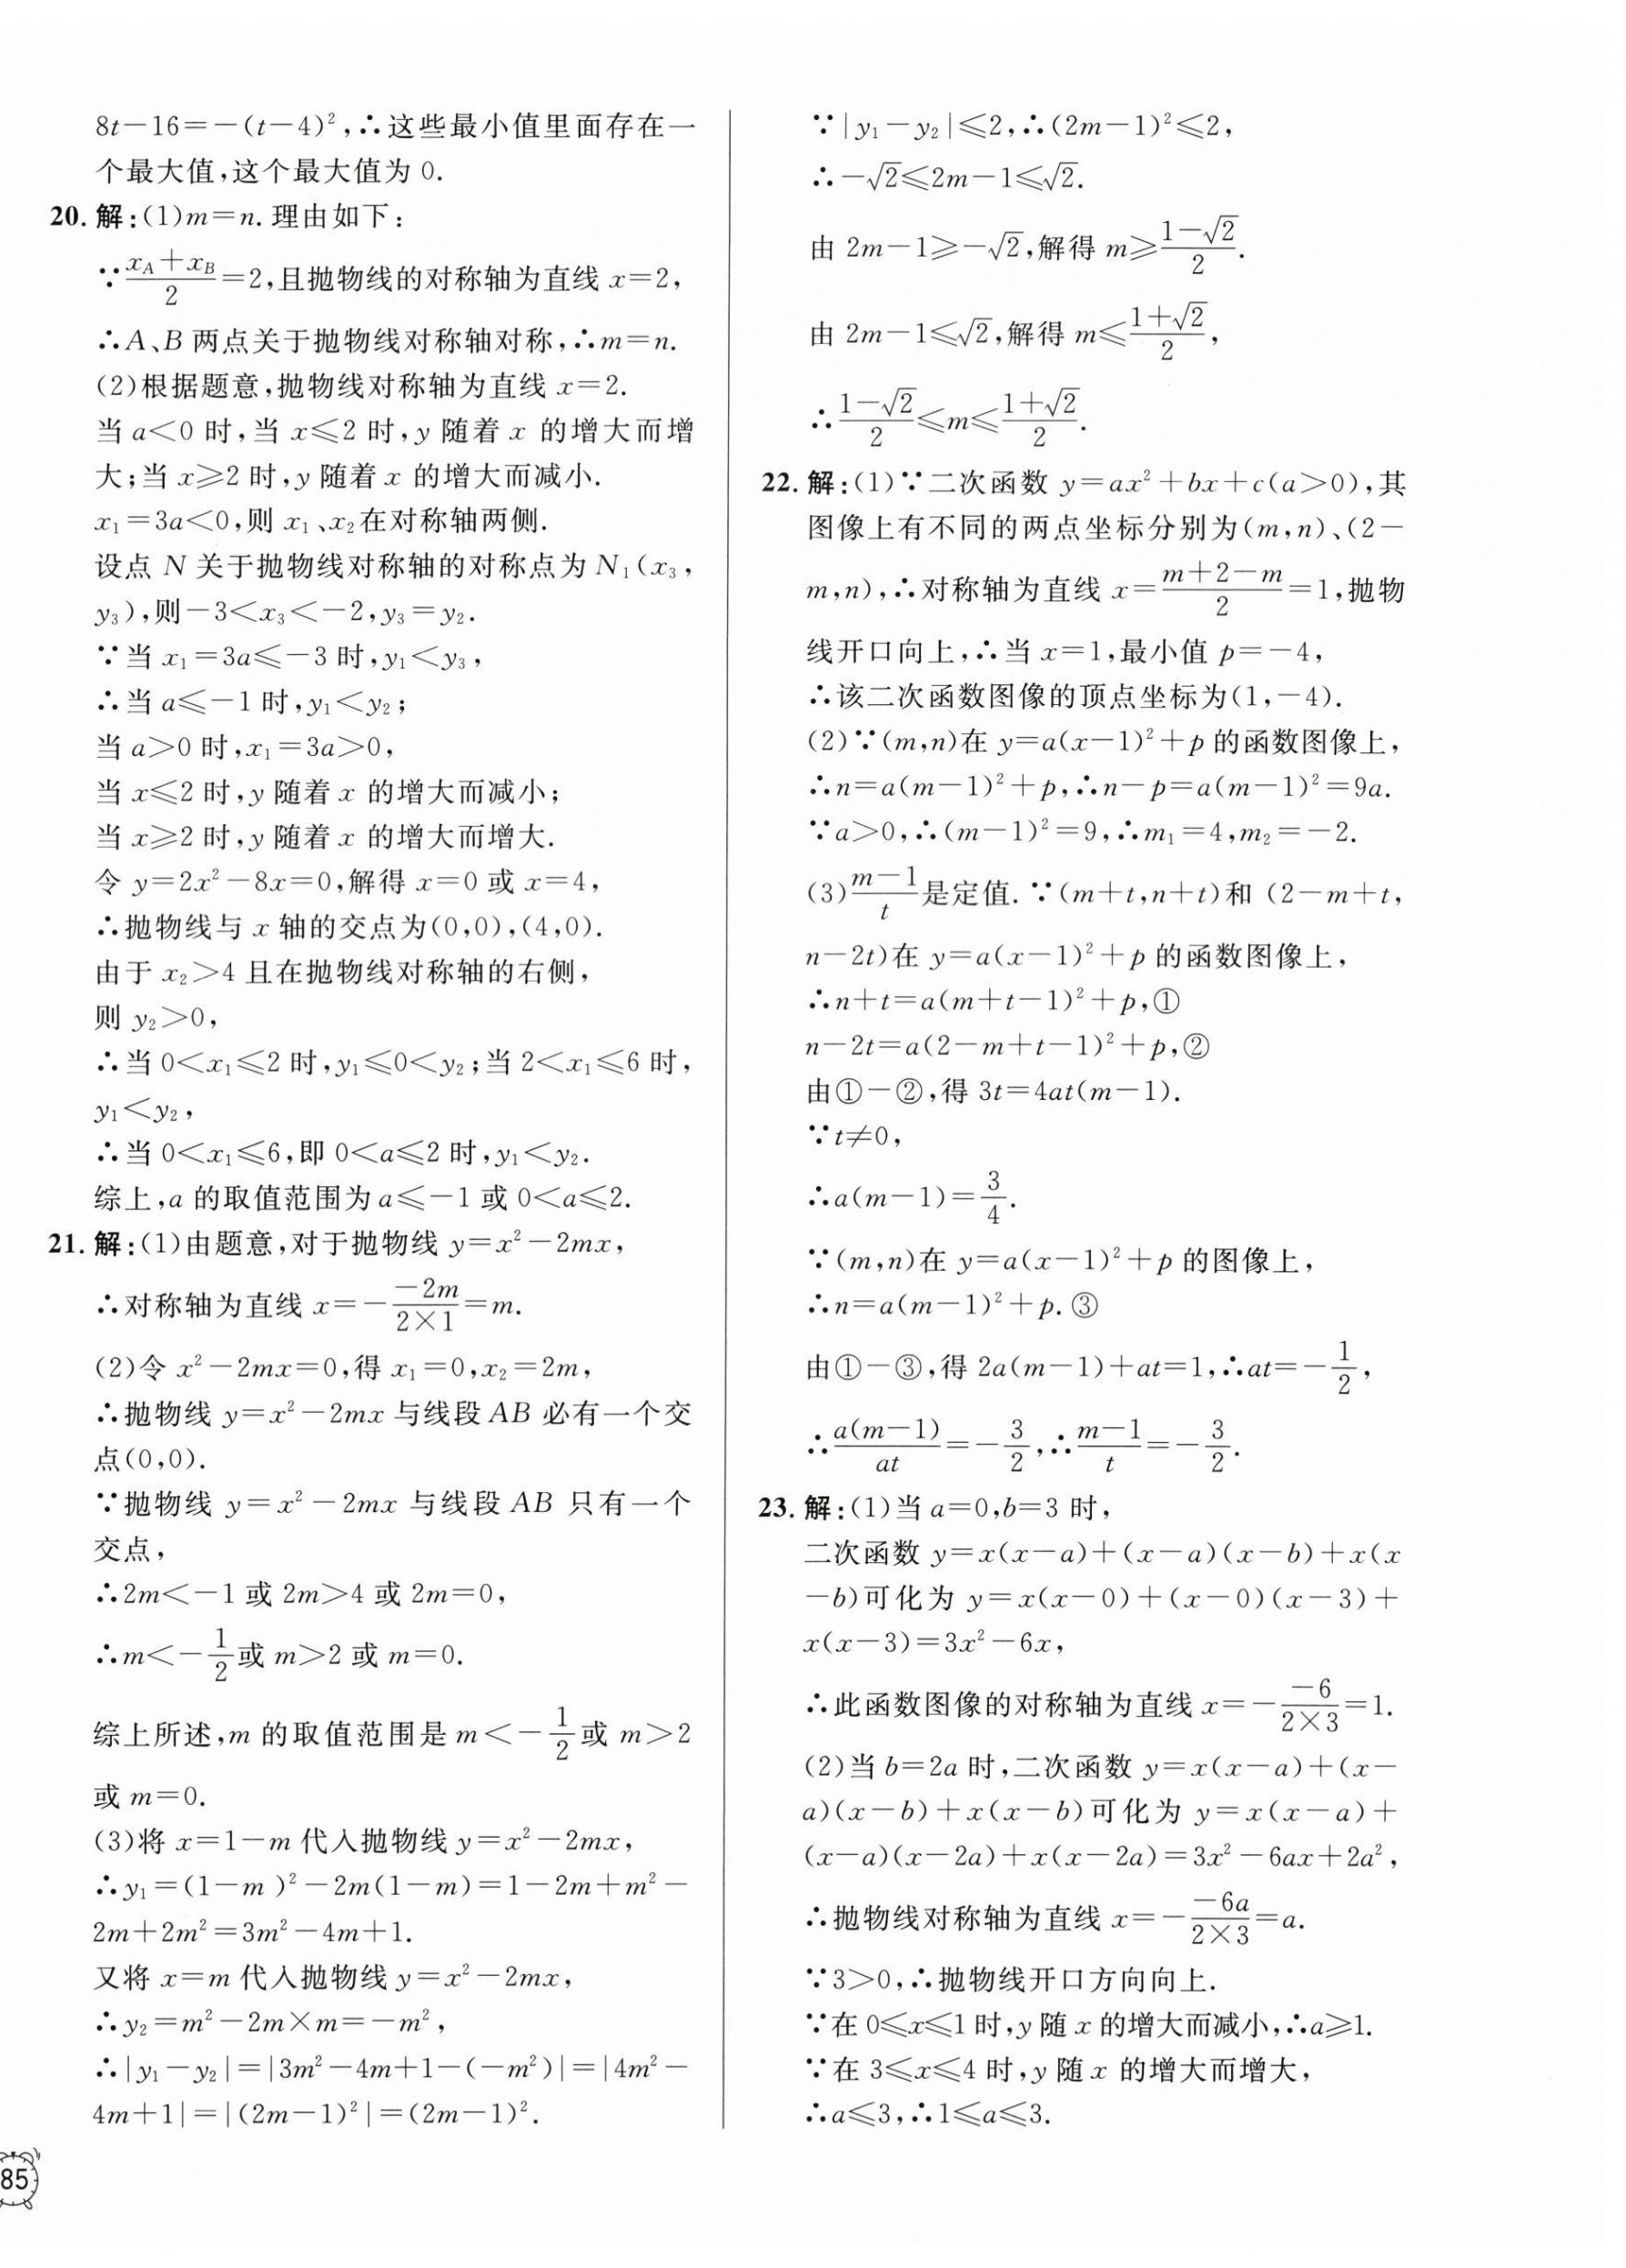 8t－16＝－(t－4)²,∴这些最小值里面存在一
个最大值,这个最大值为 0.
20. 解:(1)m＝n. 理由如下:
∵(x_A＋x_B)/2＝2,且抛物线的对称轴为直线 x＝2,
∴A、B 两点关于抛物线对称轴对称,∴m＝n.
(2)根据题意,抛物线对称轴为直线 x＝2.
当 a＜0 时,当 x≤2 时,y 随着 x 的增大而增
大;当 x≥2 时,y 随着 x 的增大而减小.
x₁＝3a＜0,则 x₁、x₂在对称轴两侧.
设点 N 关于抛物线对称轴的对称点为 N₁(x₃,
y₃),则－3＜x₃＜－2,y₃＝y₂.
∵当 x₁＝3a≤－3 时,y₁＜y₃,
∴当 a≤－1 时,y₁＜y₂;
当 a＞0 时,x₁＝3a＞0,
当 x≤2 时,y 随着 x 的增大而减小;
当 x≥2 时,y 随着 x 的增大而增大.
令 y＝2x²－8x＝0,解得 x＝0 或 x＝4,
∴抛物线与 x 轴的交点为(0,0),(4,0).
由于 x₂＞4 且在抛物线对称轴的右侧,
则 y₂＞0,
∴当 0＜x₁≤2 时,y₁≤0＜y₂;当 2＜x₁≤6 时,
y₁＜y₂,
∴当 0＜x₁≤6,即 0＜a≤2 时,y₁＜y₂.
综上,a 的取值范围为 a≤－1 或 0＜a≤2.
21. 解:(1)由题意,对于抛物线 y＝x²－2mx,
∴对称轴为直线 x＝－(－2m)/(2×1)＝m.
(2)令 x²－2mx＝0,得 x₁＝0,x₂＝2m,
∴抛物线 y＝x²－2mx 与线段 AB 必有一个交
点(0,0).
∵抛物线 y＝x²－2mx 与线段 AB 只有一个
交点,
∴2m＜－1 或 2m＞4 或 2m＝0,
∴m＜－1/2或 m＞2 或 m＝0.
综上所述,m 的取值范围是 m＜－1/2或 m＞2
或 m＝0.
(3)将 x＝1－m 代入抛物线 y＝x²－2mx,
∴y₁＝(1－m )²－2m(1－m)＝1－2m＋m²－
2m＋2m²＝3m²－4m＋1.
又将 x＝m 代入抛物线 y＝x²－2mx,
∴y₂＝m²－2m×m＝－m²,
∴|y₁－y₂|＝|3m²－4m＋1－(－m²)|＝|4m²－
4m＋1|＝|(2m－1)²|＝(2m－1)².
85
∵|y₁－y₂|≤2,∴(2m－1)²≤2,
∴－√2≤2m－1≤√2.
由 2m－1≥－√2,解得 m≥(1－√2)/2.
由 2m－1≤√2,解得 m≤(1＋√2)/2,
∴(1－√2)/2≤m≤(1＋√2)/2.
22. 解:(1)∵二次函数 y＝ax²＋bx＋c(a＞0),其
图像上有不同的两点坐标分别为(m,n)、(2－
m,n),∴对称轴为直线 x＝(m＋2－m)/2＝1,抛物
线开口向上,∴当 x＝1,最小值 p＝－4,
∴该二次函数图像的顶点坐标为(1,－4).
(2)∵(m,n)在 y＝a(x－1)²＋p 的函数图像上,
∴n＝a(m－1)²＋p,∴n－p＝a(m－1)²＝9a.
∵a＞0,∴(m－1)²＝9,∴m₁＝4,m₂＝－2.
(3)(m－1)/t是定值. ∵(m＋t,n＋t)和 (2－m＋t,
n－2t)在 y＝a(x－1)²＋p 的函数图像上,
∴n＋t＝a(m＋t－1)²＋p,①
n－2t＝a(2－m＋t－1)²＋p,②
由①－②,得 3t＝4at(m－1).
∵t≠0,
∴a(m－1)＝3/4.
∵(m,n)在 y＝a(x－1)²＋p 的图像上,
∴n＝a(m－1)²＋p. ③
由①－③,得 2a(m－1)＋at＝1,∴at＝－1/2,
∴a(m－1)/at＝－3/2,∴(m－1)/t＝－3/2.
23. 解:(1)当 a＝0,b＝3 时,
二次函数 y＝x(x－a)＋(x－a)(x－b)＋x(x
－b)可化为 y＝x(x－0)＋(x－0)(x－3)＋
x(x－3)＝3x²－6x,
∴此函数图像的对称轴为直线 x＝－(－6)/(2×3)＝1.
(2)当 b＝2a 时,二次函数 y＝x(x－a)＋(x－
a)(x－b)＋x(x－b)可化为 y＝x(x－a)＋
(x－a)(x－2a)＋x(x－2a)＝3x²－6ax＋2a²,
∴抛物线对称轴为直线 x＝－(－6a)/(2×3)＝a.
∵3＞0,∴抛物线开口方向向上.
∵在 0≤x≤1 时,y 随 x 的增大而减小,∴a≥1.
∵在 3≤x≤4 时,y 随 x 的增大而增大,
∴a≤3,∴1≤a≤3.